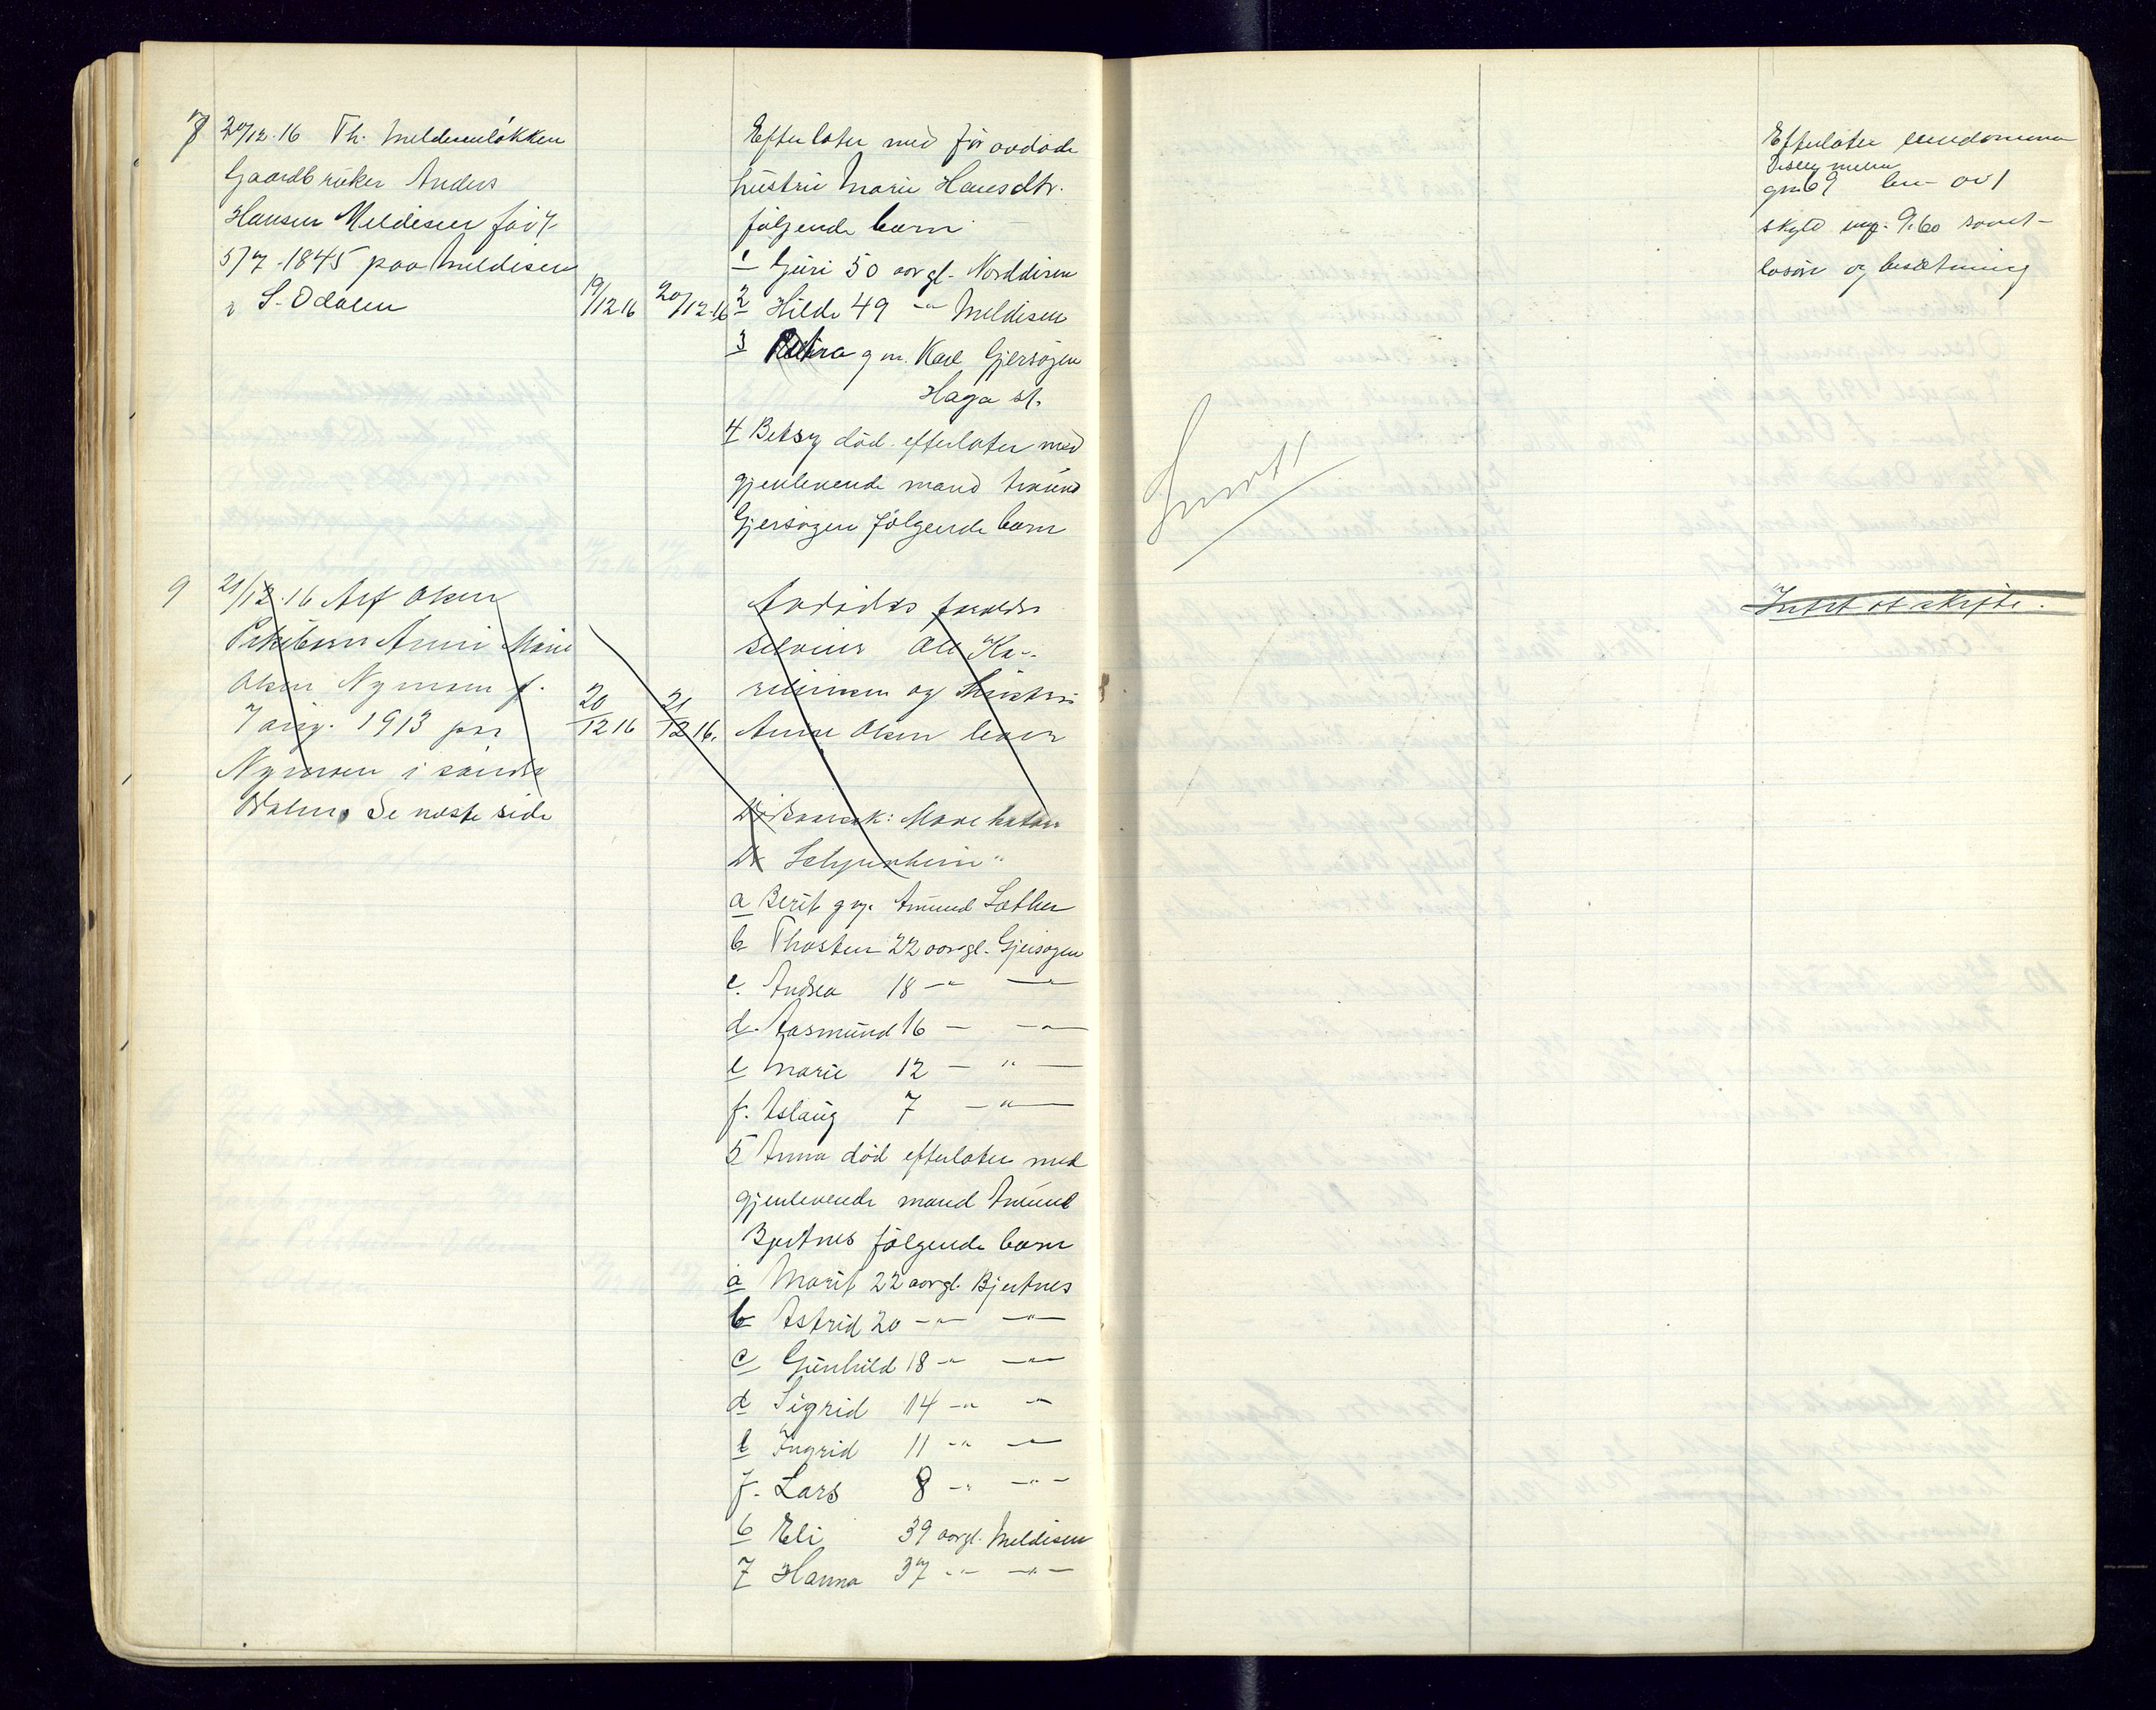 8 20/12-16 Th. Meldisenløkken
Gaardbruker Anders
Hansen Meldisen født
5/7-1845 paa Meldisen
i S. Odalen
19/12 16 20/12-16
Efterlater med før avdøde
hustru Marie Hansdtr.
følgende barn
1 Guri 50 aar gl. Norddisen
2 Hilde 49 -"- Meldisen
3 Petra g m. Karl Gjersøgen
Haga st.
4 Betsy død efterlater med
gjenlevende mand Amund
Gjersøgen følgende barn
9 21/12-16 Arf Olsen
Pikebarn Anne Marie
Olsen Nymoen f.
7 aug. 1913 paa
Nymoen i søndre
Odalen. Se neste side
20/12 16 21/12 16.
Avdødes forældre
Ole
og hustru
Anne Olsen lever
a Berit g m. Amund Sæther
b Thosten 22 aar gl. Gjersøgen
c. Andrea 18 -"- -"-
d. Aasmund 16 - -"-
e Marie 12 - -"-
f. Aslaug 7 -"-
5 Anna død efterlater med
gjenlevende mand Amund
Bjertnes følgende barn
a Marit 22 aar gl. Bjertnes
b Astrid 20 -"- -"-
c Gunhild 18 -"- -"-
d Sigrid 14 -"- -"-
e Ingrid 11 -"- -"-
f. Lars 8 -"- -"-
6 Eli 39 aar gl. Meldisen
7 Hanna 37 -"- -"-
Efterlater eiendommen
gno 69 bno av 1
skyld mrk. 9.60 samt
løsøre og besætning
Intet at skifte.